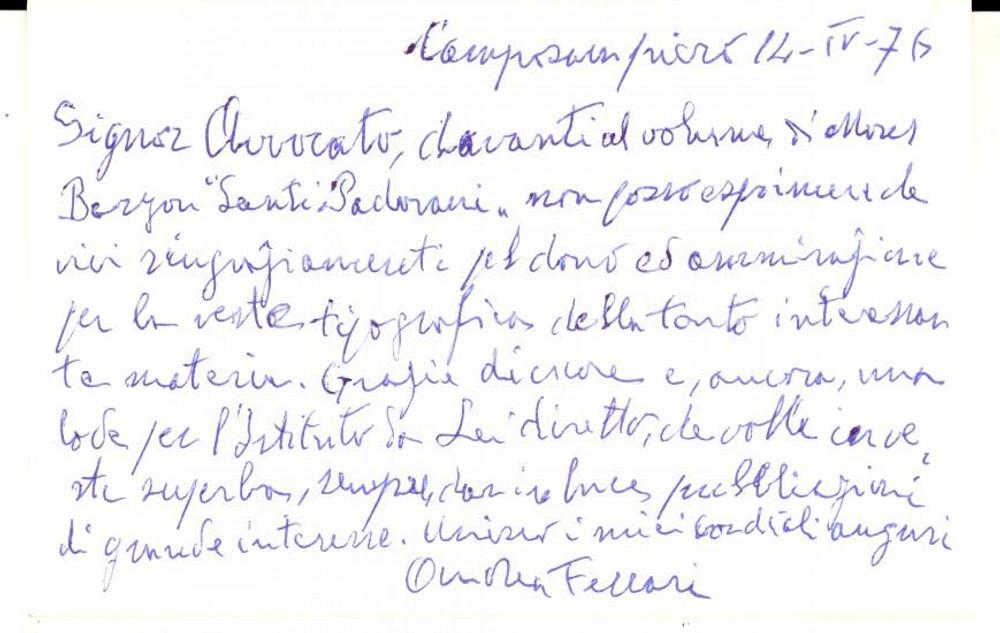 Camposampiero 14-IV-76
Signor Avvocato, davanti al volume di
"Santi Padovani" non posso esprimere che
vivi ringraziamenti pel dono ed ammirazione
per la veste tipografica della tanto interessan
te materia. Grazie di cuore e, ancora, una
lode per l'Istituto da Lei diretto, che volle in ve,
ste superba, sempre, dare in luce, pubblicazioni
di grande interesse. Unisco i miei cordiali auguri
Ferrari